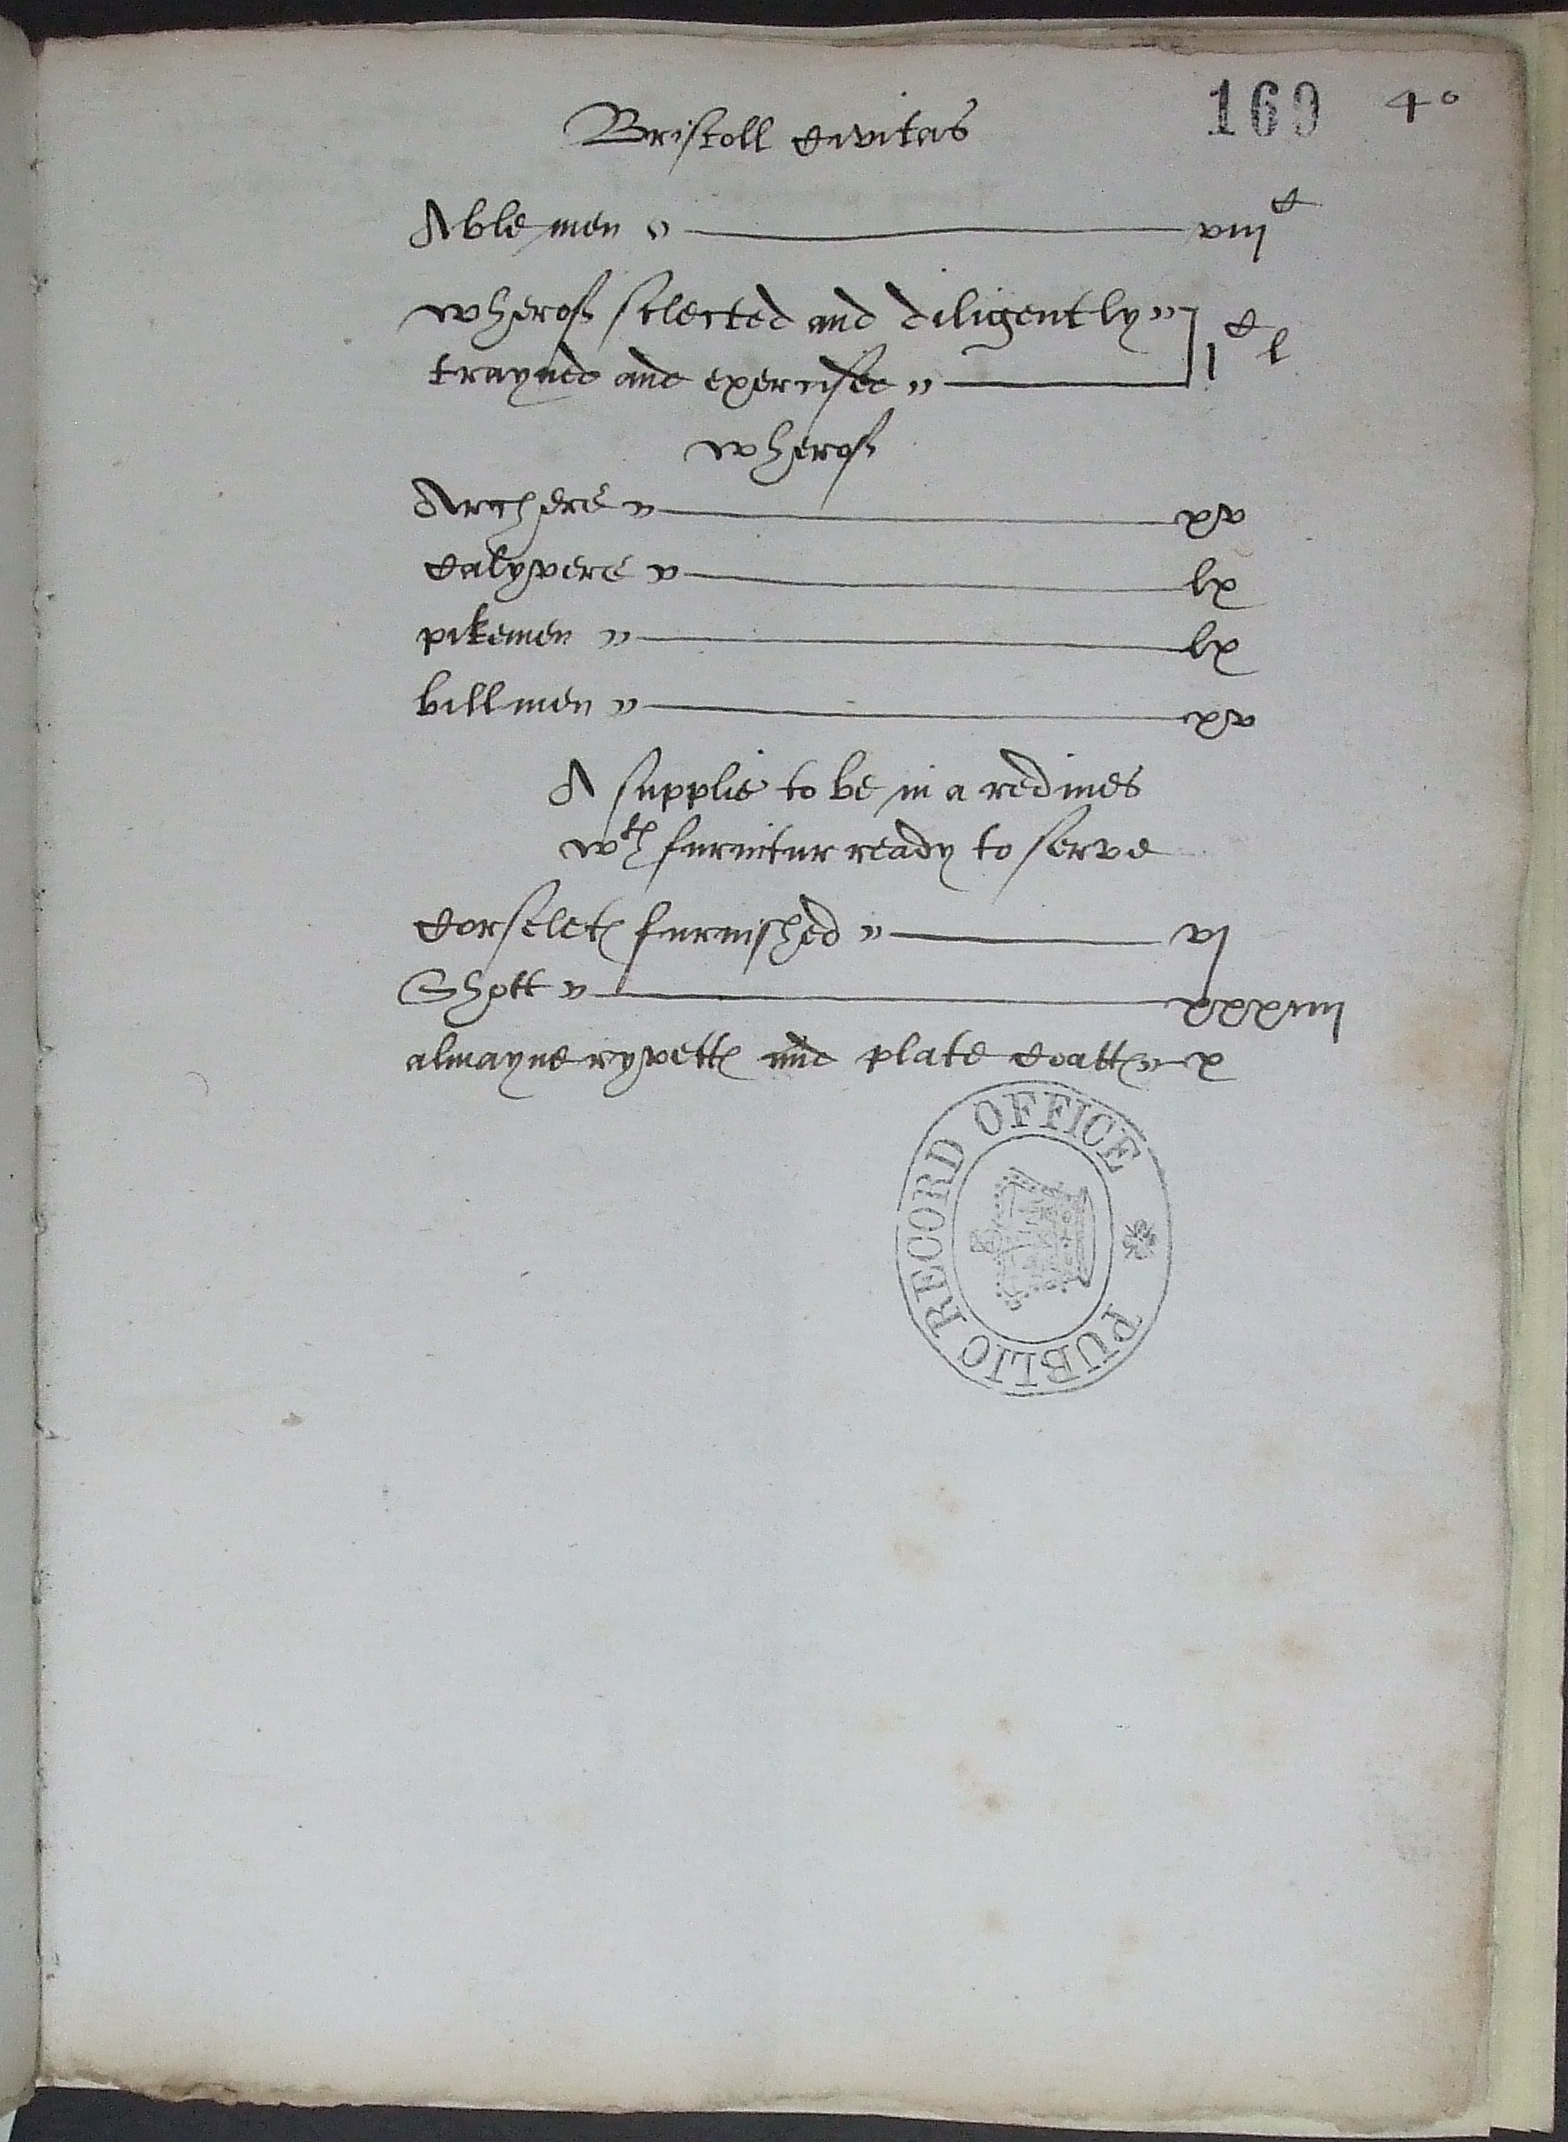 169 4o
Bristoll Civitas
Able men viijC
wherof selected and diligently
trayned and exercised jC l
wherof
Archers xv
Calyvers lx
pikemen lx
billmen xv
A supplie to be in a redines
wth furnitur ready to serve
Corseletes furnished vj
Shott xxxiiij
almayne ryvettes and plate Coattes x
PUBLIC RECORD OFFICE